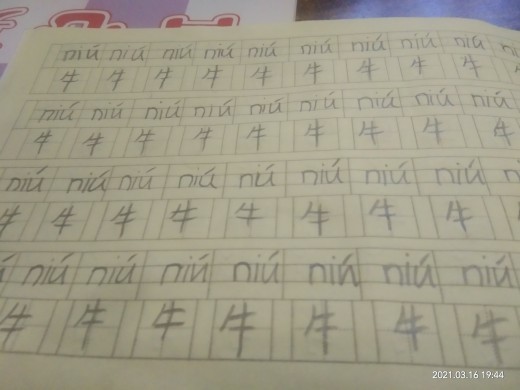 niú niú niú niú niú niú niú niú niú
牛 牛 牛 牛 牛 牛 牛 牛 牛
niú niú niú niú niú niú niú niú niú
牛 牛 牛 牛 牛 牛 牛 牛 牛
niú niú niú niú niú niú niú niú
牛 牛 牛 牛 牛 牛 牛 牛
niú niú niú niú niú niú niú
牛 牛 牛 牛 牛 牛 牛
2021.03.16 19:44